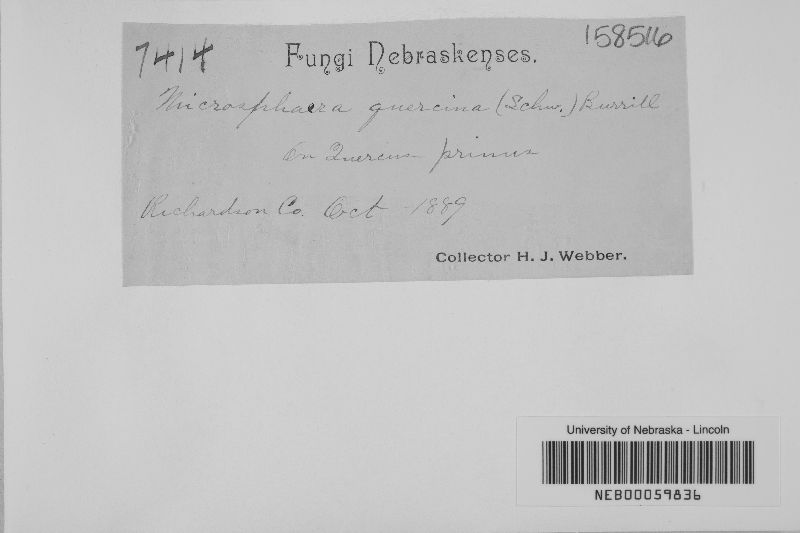 7414 Fungi Nebraskenses. 158516
Microsphaera quercina (Schw.) Burrill
On Quercus prinus
Richardson Co. Oct - 1889
Collector H. J. Webber.
University of Nebraska - Lincoln
NEB00059836